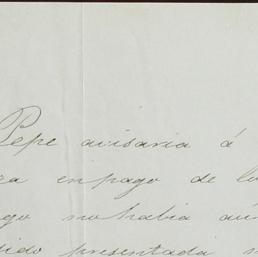 Pepe avisaria á
en pago de lo
no habia aún
sido presentada